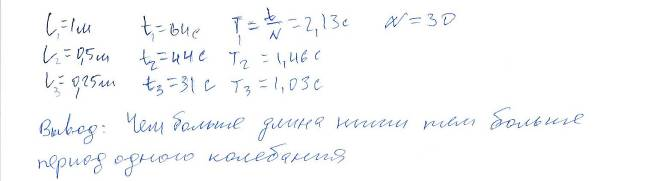 l₁=1м t₁=64с T₁=t/N=2,13с N=30
l₂=0,5м t₂=44с T₂=1,46с
l₃=0,25м t₃=31с T₃=1,03с
Вывод: Чем больше длина нити тем больше
период одного колебания